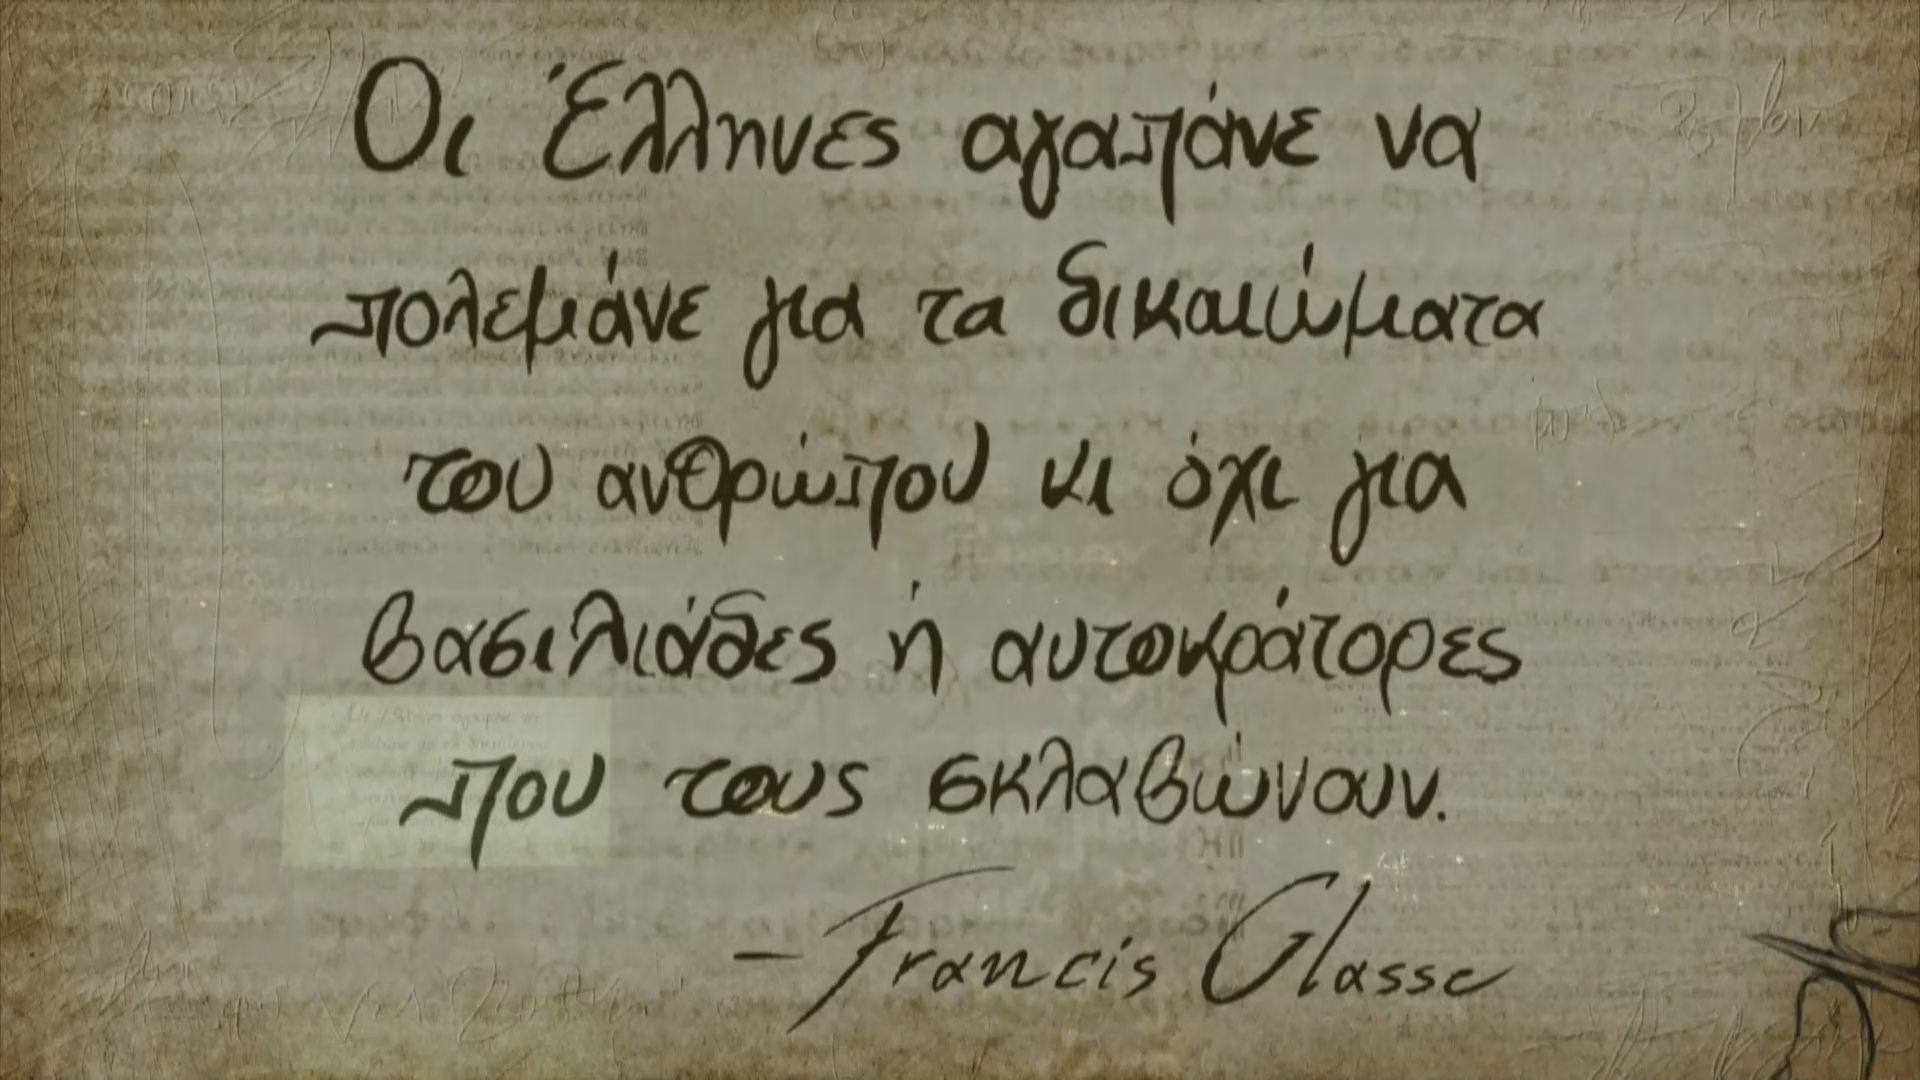 Οι Έλληνες αγαπάνε να
πολεμάνε για τα δικαιώματα
του ανθρώπου κι όχι για
βασιλιάδες ή αυτοκράτορες
που τους σκλαβώνουν.
– Francis Glasse